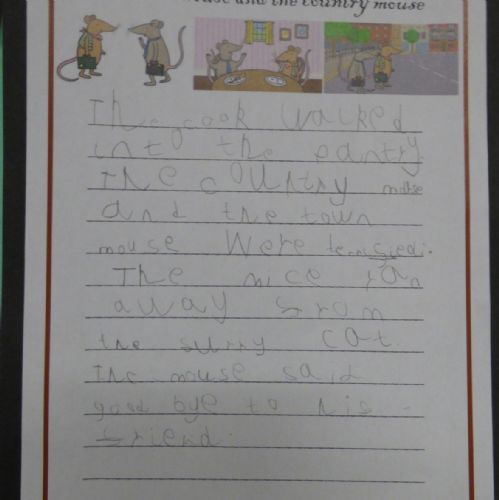 and the country mouse
The cook walked
into the pantry.
The country mouse
and the town
mouse were
The mice ran
away from
the furry cat.
The mouse said
good bye to his
friend.